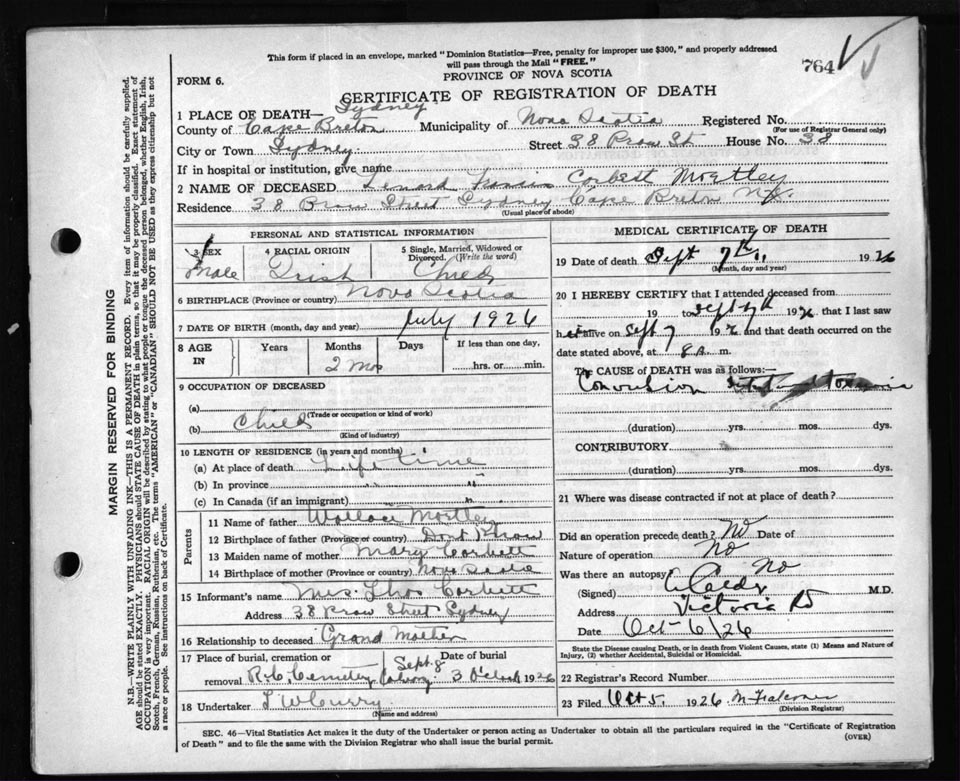 This form if placed in an envelope, marked "Dominion Statistics—Free, penalty for improper use $300," and properly addressed
will pass through the Mail "FREE."
764
FORM 6.
PROVINCE OF NOVA SCOTIA
CERTIFICATE OF REGISTRATION OF DEATH
1 PLACE OF DEATH— Sydney
County of Cape Breton Municipality of Nova Scotia Registered No.
(For use of Registrar General only)
City or Town Sydney. Street 38 Prow St House No. 38
If in hospital or institution, give name
2 NAME OF DECEASED Lenard Francis Corbest Mortley
Residence 38 Prow Street Sydney Cape Breton N.S.
(Usual place of abode)
PERSONAL AND STATISTICAL INFORMATION
3 SEX 4 RACIAL ORIGIN 5 Single, Married, Widowed or
Divorced. (Write the word)
Male Irish Chied
6 BIRTHPLACE (Province or country) Nova Scotia
7 DATE OF BIRTH (month, day and year) July 1926
8 AGE IN Years Months Days If less than one day,
2 Mos hrs. or min.
9 OCCUPATION OF DECEASED
(a)
(Trade or occupation or kind of work)
(b) Chied
(Kind of industry)
10 LENGTH OF RESIDENCE (in years and months)
(a) At place of death Life time
(b) In province "
(c) In Canada (if an immigrant) "
Parents
11 Name of father Wallace Mortley
12 Birthplace of father (Province or country) Dont Know
13 Maiden name of mother Mary Corbett
14 Birthplace of mother (Province or country) Nova Scotia
15 Informant's name Mrs. Thos Corbett
Address 38 Prow Street Sydney
16 Relationship to deceased Grand Mother
17 Place of burial, cremation or Date of burial
Sept. 8
removal R.C. Cemetery Calvary 3 O'clock 1926
18 Undertaker T W Curry.
(Name and address)
MEDICAL CERTIFICATE OF DEATH
19 Date of death Sept 7th 1926
(Month, day and year)
20 I HEREBY CERTIFY that I attended deceased from
19 to Sept 7th 1926 that I last saw
h alive on Sept 7 1926 and that death occurred on the
date stated above, at 8 a. m.
The CAUSE of DEATH was as follows:—
Convulsion
(duration) yrs. mos. dys.
CONTRIBUTORY
(duration) yrs. mos. dys.
21 Where was disease contracted if not at place of death?
Did an operation precede death? No Date of
Nature of operation No
Was there an autopsy? No
(Signed) M.D.
Address Victoria Rd
Date Oct 6/26
State the Disease causing Death, or in death from Violent Causes, state (1) Means and Nature of
Injury, (2) whether Accidental, Suicidal or Homicidal.
22 Registrar's Record Number
23 Filed Oct 5. 1926 M Falconer
(Division Registrar)
SEC. 46—Vital Statistics Act makes it the duty of the Undertaker or person acting as Undertaker to obtain all the particulars required in the "Certificate of Registration
of Death" and to file the same with the Division Registrar who shall issue the burial permit.
(OVER)
MARGIN RESERVED FOR BINDING
N.B.—WRITE PLAINLY WITH UNFADING INK—THIS IS A PERMANENT RECORD. Every item of information should be carefully supplied.
AGE should be stated EXACTLY. PHYSICIANS should STATE CAUSE OF DEATH in plain terms, so that it may be properly classified. Exact statement of
OCCUPATION is very important. RACIAL ORIGIN will be described by stating to what people or tongue the deceased person belonged, whether English, Irish,
Scotch, French, German, Russian, Ruthenian, etc. The terms "AMERICAN" or "CANADIAN" SHOULD NOT BE USED as they express citizenship but not
a race or people. See instructions on back of Certificate.